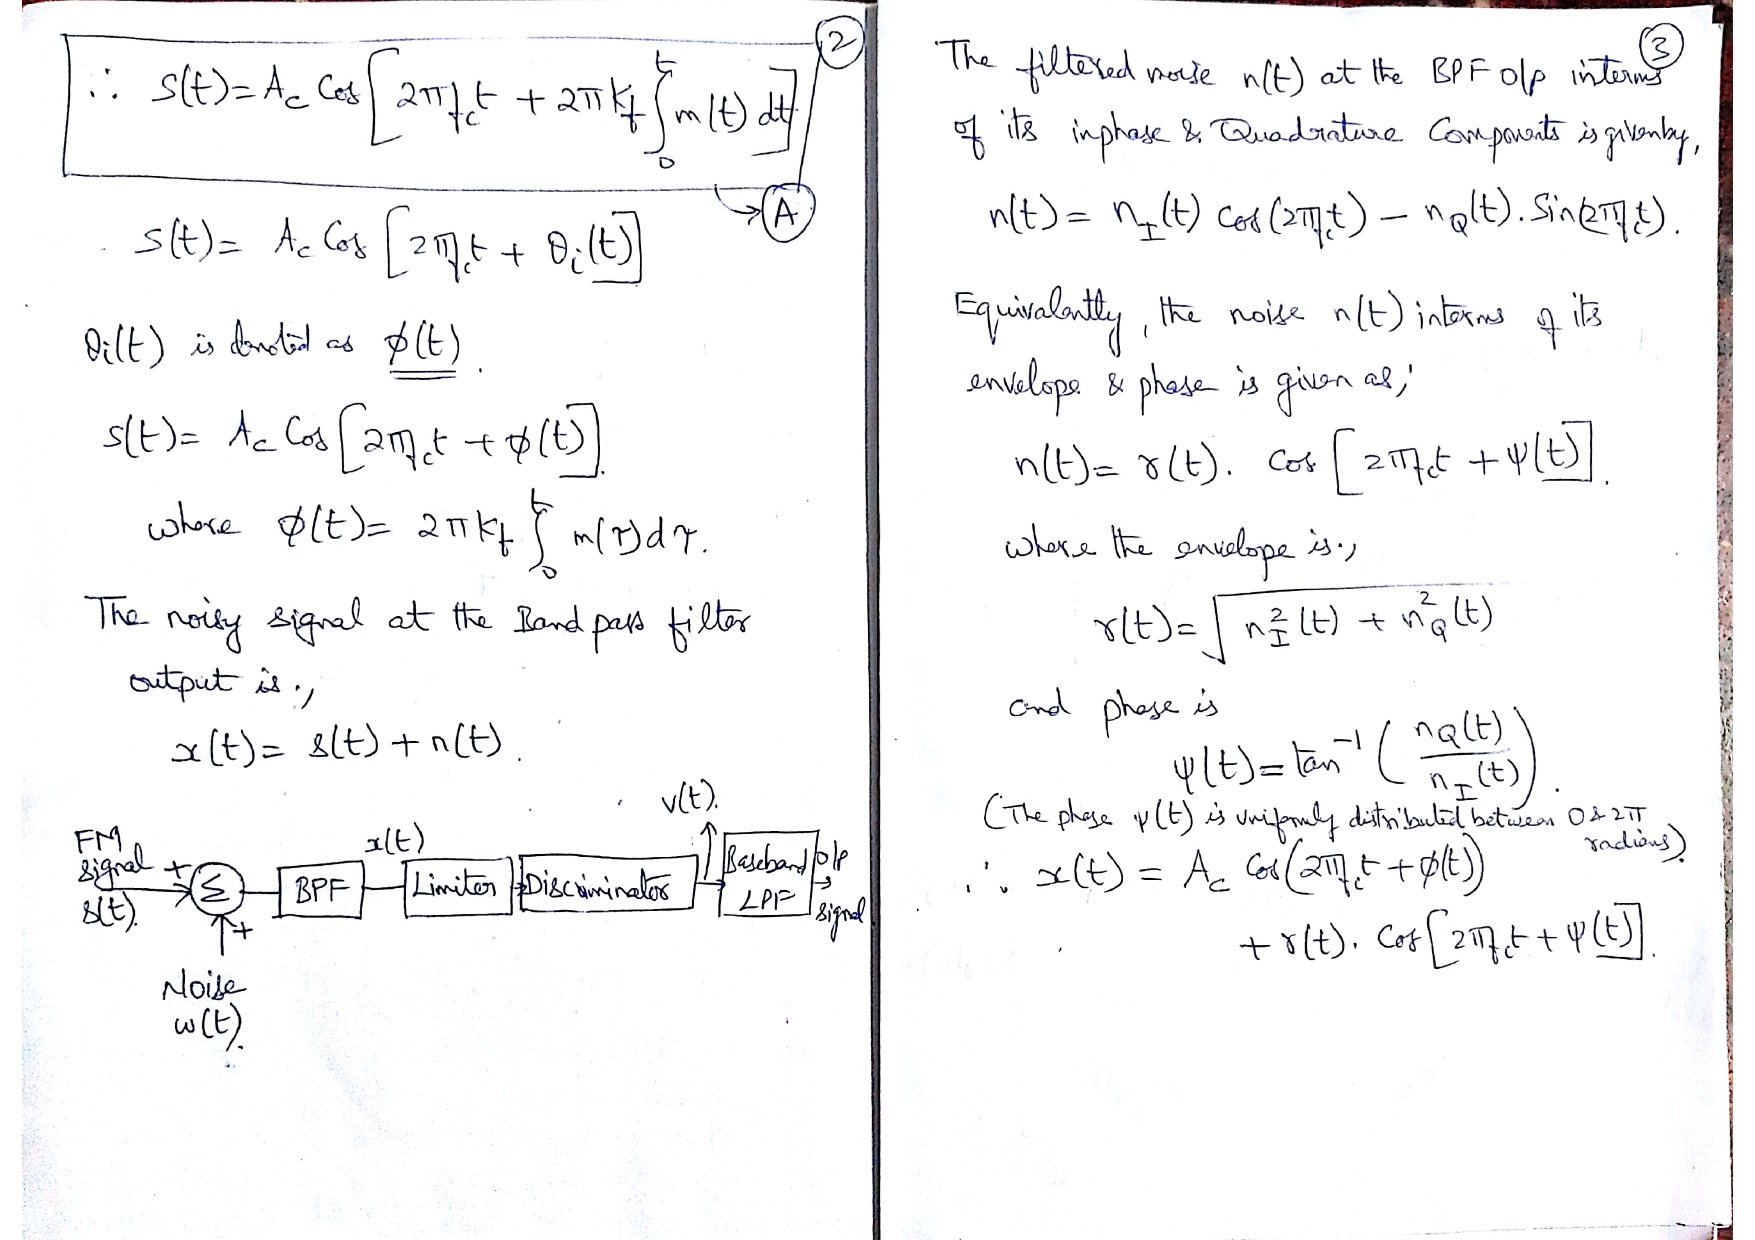 2
∴ S(t) = Ac Cos [2πfct + 2πkf ∫₀ᵗ m(t) dt]
→ A
S(t) = Ac Cos [2πfct + θi(t)]
θi(t) is denoted as φ(t).
S(t) = Ac Cos [2πfct + φ(t)].
where φ(t) = 2πkf ∫₀ᵗ m(τ)dτ.
The noisy signal at the Band pass filter
output is.,
x(t) = s(t) + n(t).
v(t).
FM signal s(t). + Σ BPF x(t) Limiter Discriminator Baseband LPF o/p signal
+
Noise
w(t).
3
The filtered noise n(t) at the BPF o/p interms
of its inphase & Quadrature Components is givenby,
n(t) = nI(t) Cos(2πfct) – nQ(t). Sin(2πfct).
Equivalantly, the noise n(t) interms of its
envelope & phase is given as,
n(t) = r(t). Cos [2πfct + ψ(t)].
where the envelope is.,
r(t) = √(nI²(t) + nQ²(t))
and phase is
ψ(t) = tan⁻¹ (nQ(t) / nI(t)).
(The phase ψ(t) is uniformly distributed between 0 & 2π
radians).
∴ x(t) = Ac Cos(2πfct + φ(t))
+ r(t). Cos [2πfct + ψ(t)].